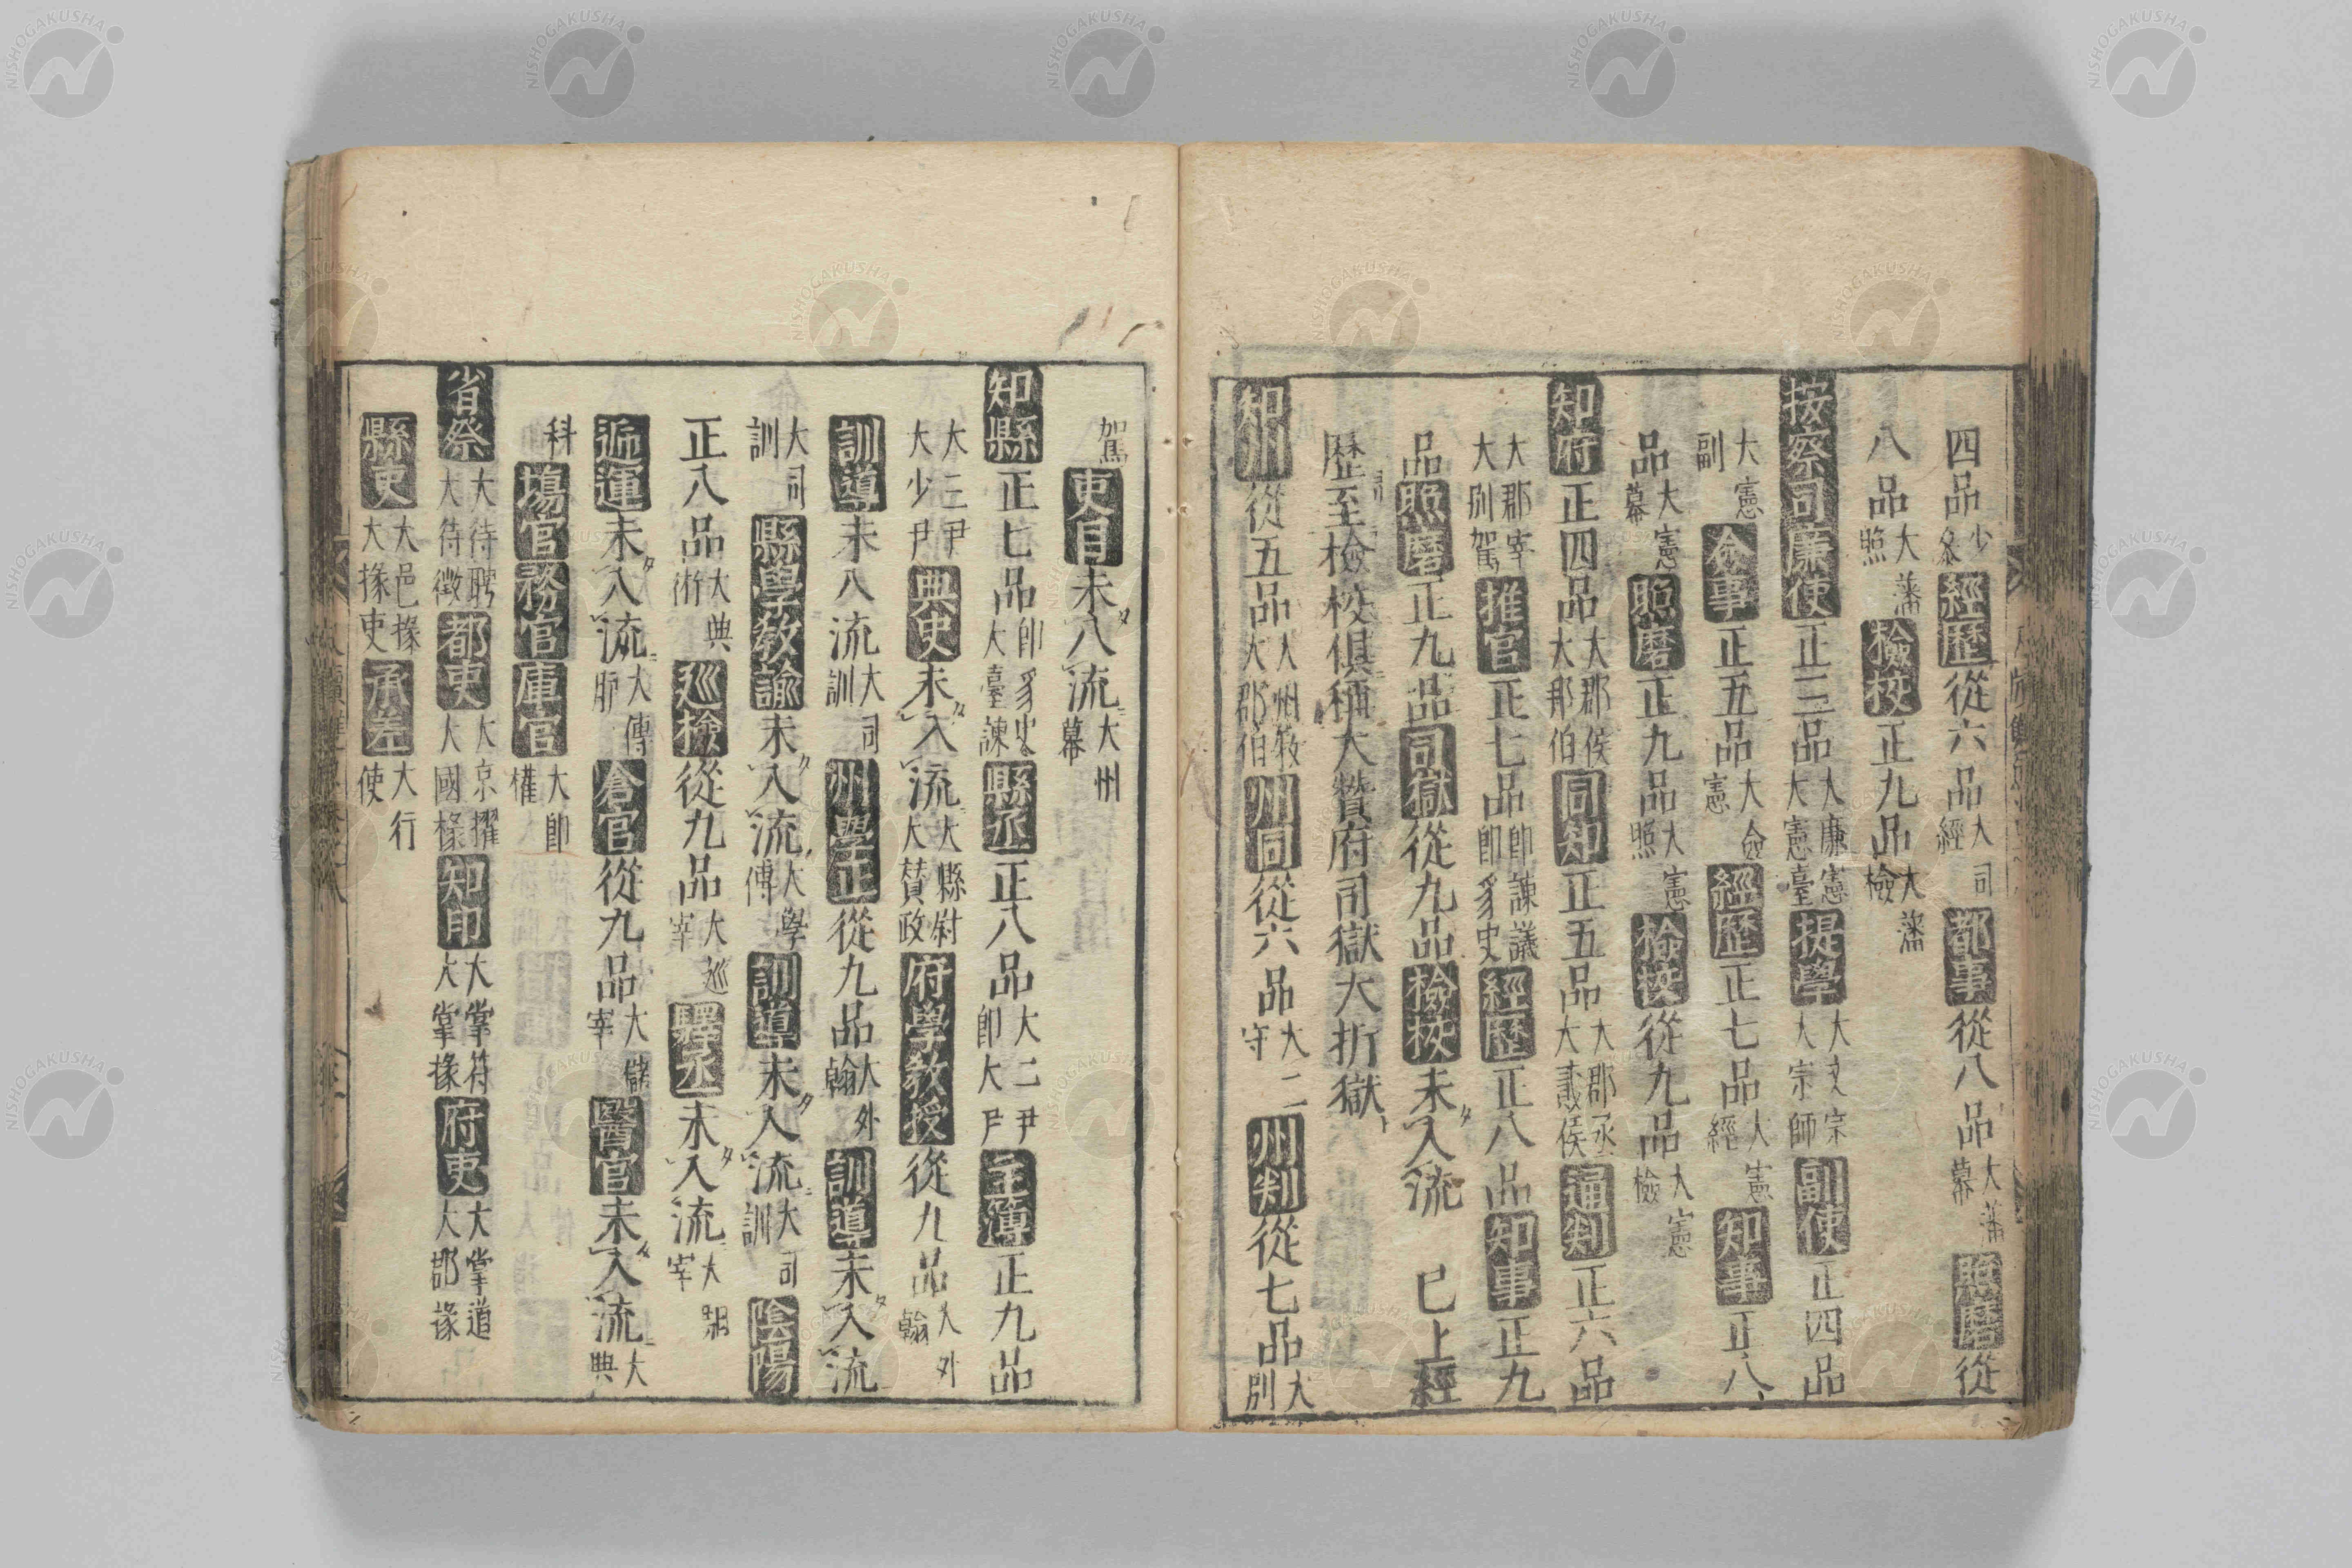 四品少參經歷從六品大司經都事從八品大藩幕照磨從
八品大藩照檢校正九品大藩檢
按察司廉使正三品大廉憲大憲臺提學大文宗大宗師副使正四品
大憲副僉事正五品大僉憲經歷正七品大憲經知事正八
品大憲幕照磨正九品大憲照檢校從九品大憲檢
知府正四品大郡侯大郡伯同知正五品大郡丞大貳侯通判正六品
大郡宰大別駕推官正七品帥諫議帥豸史經歷正八品知事正九
品照磨正九品司獄從九品檢校未入流 已上經
歷至檢校俱稱大贊府司獄大折獄
知州從五品大州牧大郡伯州同從六品大二守州判從七品大別
駕吏目未入流大州幕
知縣正七品帥豸史大臺諫縣丞正八品大二尹帥大尹主簿正九品
大三尹大少尹典史未入流大縣尉大贊政府學教授從九品大外翰
訓導未入流大司訓州學正從九品大外翰訓導未入流
大司訓縣學教諭未入流大學傅訓導未入流大司訓陰陽
正八品大典術巡檢從九品大巡宰驛丞未入流大宰
遞運未入流大傳倉官從九品大儲宰醫官未入流大典
科塲官務官庫官大帥權
省祭大待聘大待徵都吏大京擢大國椽知印大掌符大掌掾府吏大掌道大郡掾
縣吏大邑掾大掾吏承差大行使
NISHOGAKUSHA